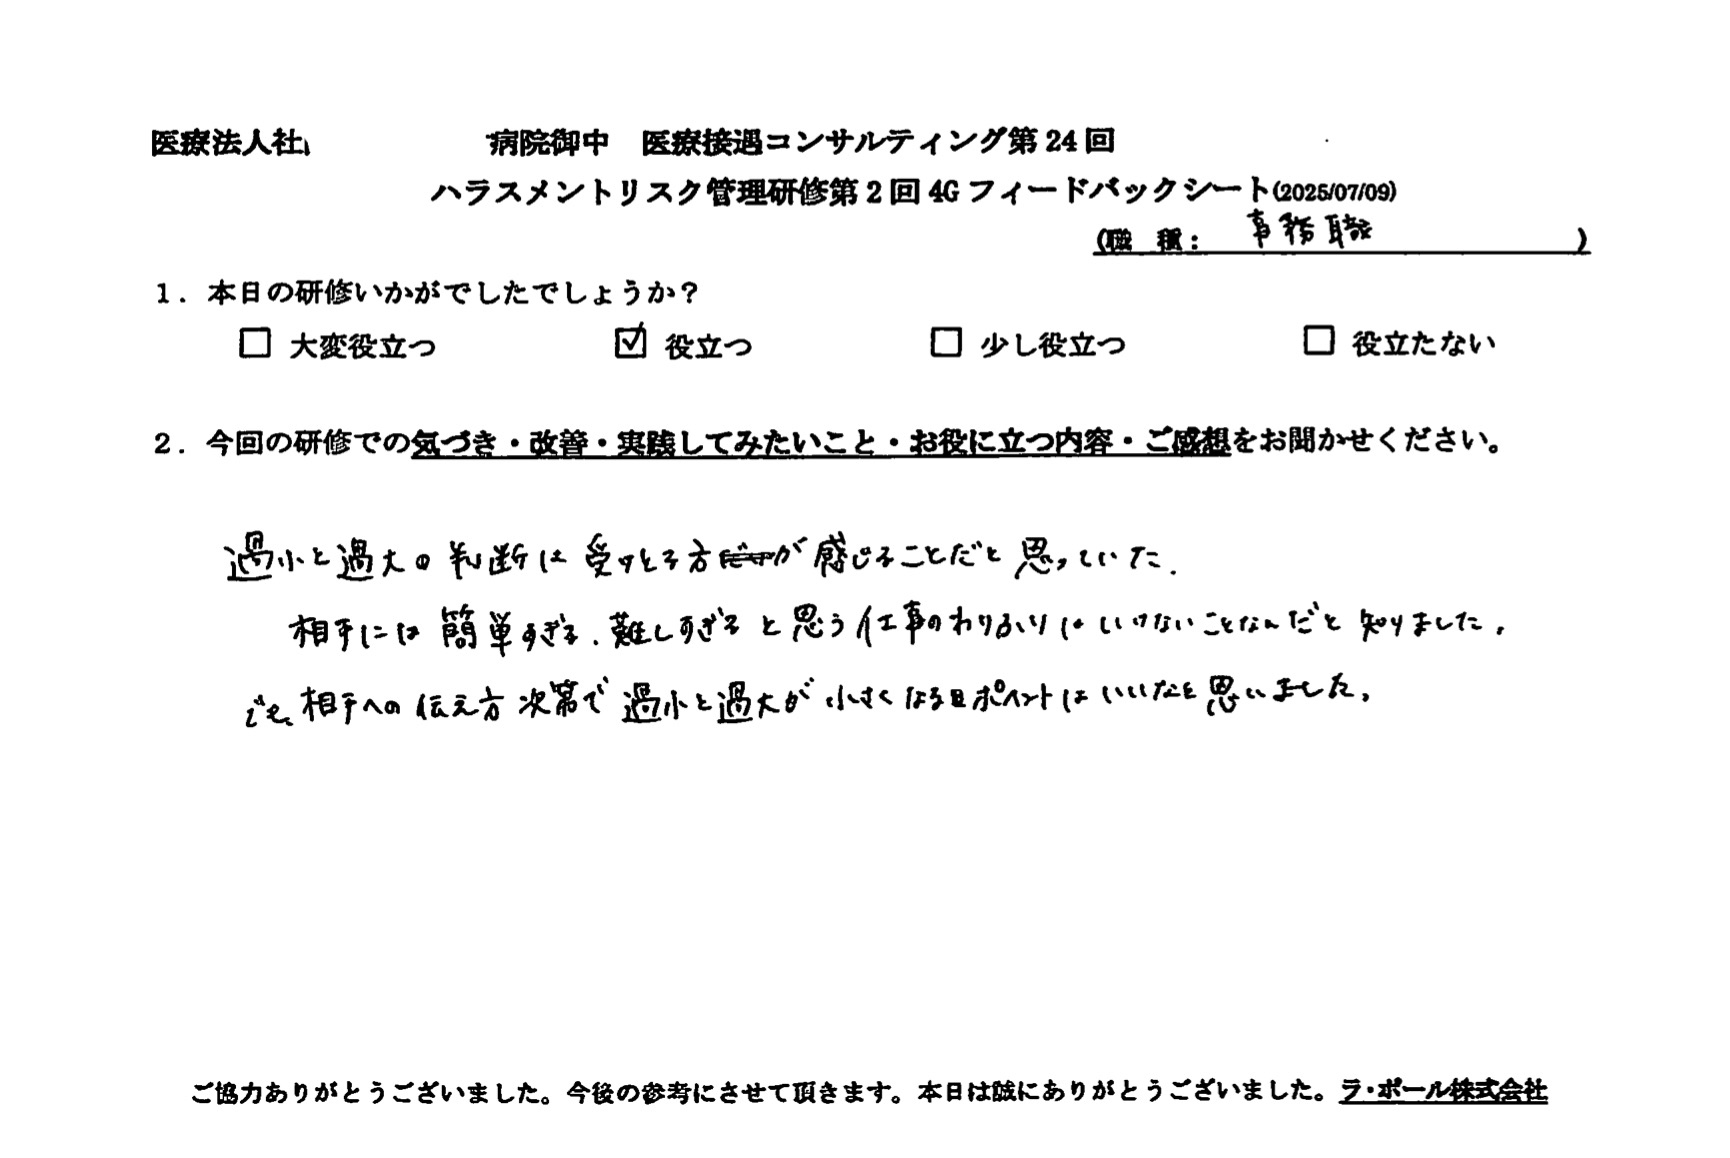 医療法人社 病院御中 医療接遇コンサルティング第24回
ハラスメントリスク管理研修第2回 4G フィードバックシート(2025/07/09)
(職 種: 事務職 )
1. 本日の研修いかがでしたでしょうか?
□ 大変役立つ ☑ 役立つ □ 少し役立つ □ 役立たない
2. 今回の研修での気づき・改善・実践してみたいこと・お役に立つ内容・ご感想をお聞かせください。
過小と過大の判断は受けとる方が感じることだと思っていた.
相手には簡単すぎる、難しすぎると思う仕事のわりふりはいけないことなんだと知りました。
でも、相手への伝え方次第で過小と過大が小さくなる ポイントはいいなと思いました。
ご協力ありがとうございました。今後の参考にさせて頂きます。本日は誠にありがとうございました。ラ・ポール株式会社